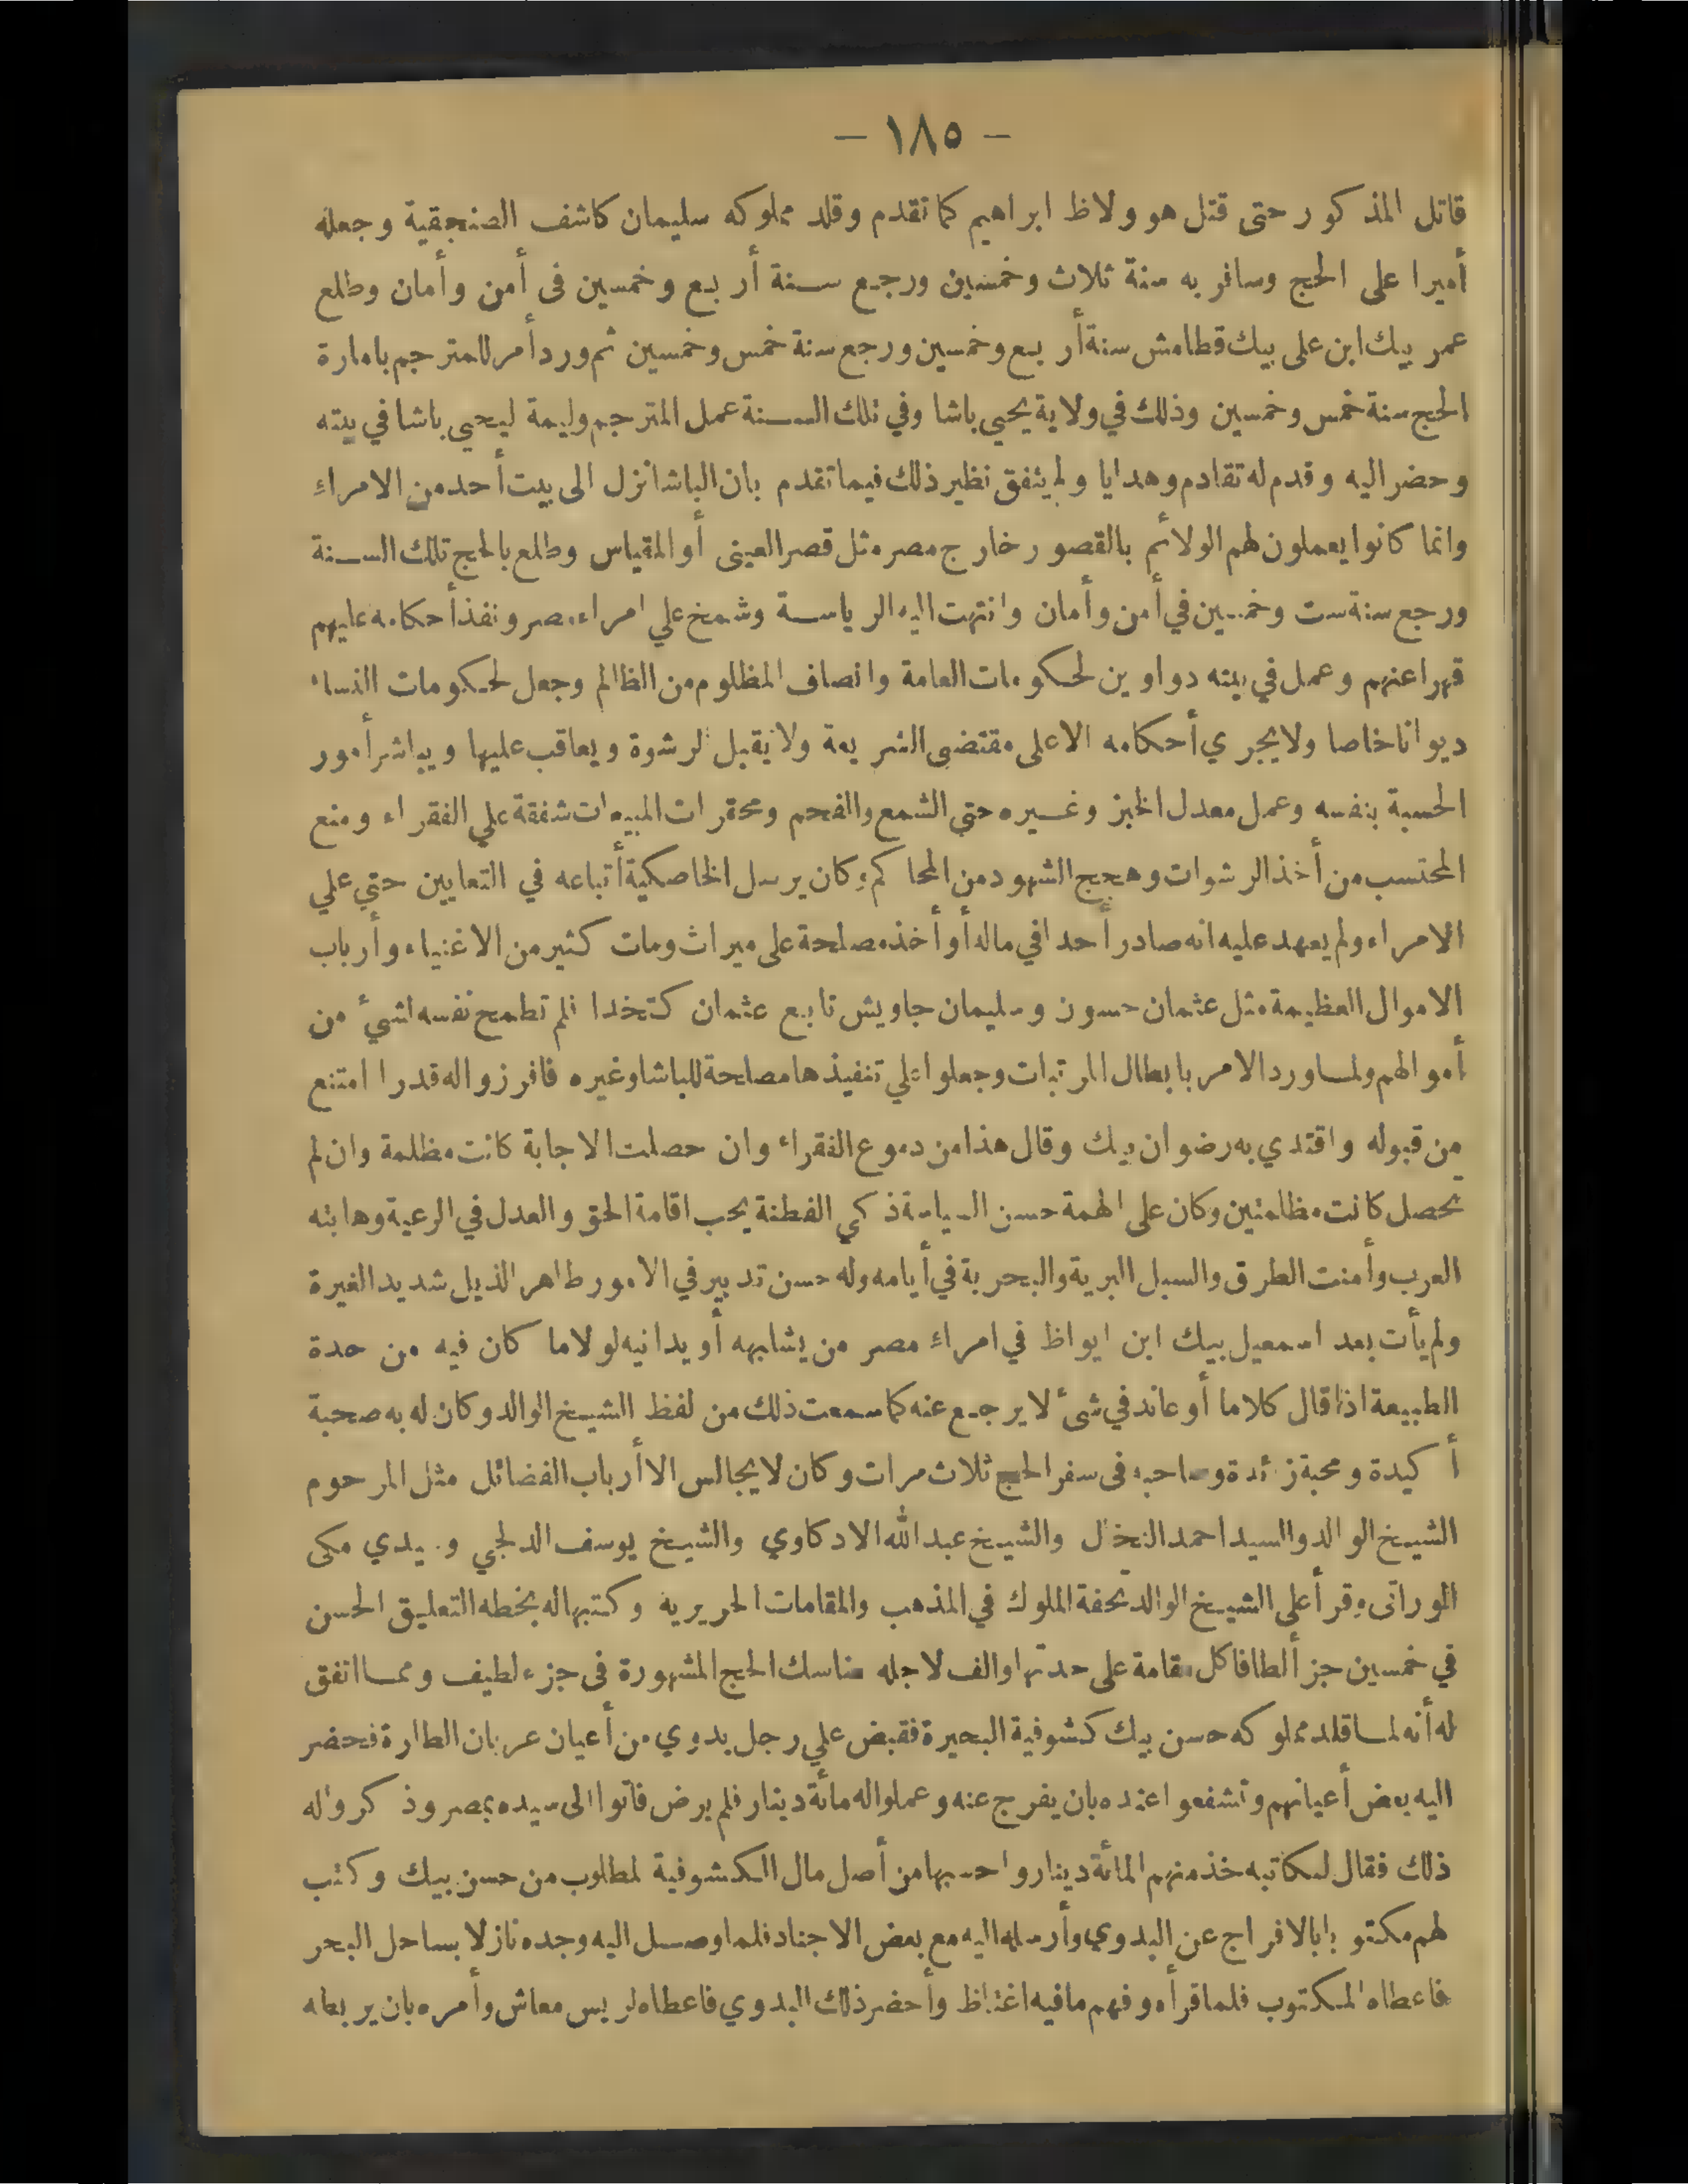 – ١٨٥ –
قاتل المذكور حتى قتل هو ولاظ ابراهيم كما تقدم وقلد مملوكه سليمان كاشف الصنجقية وجعله
أميرا على الحج وسافر به سنة ثلاث وخمسين ورجع سنة أربع وخمسين فى أمن وأمان وطلع
عمر بيك ابن على بيك قطامش سنة أربع وخمسين ورجع سنة خمس وخمسين ثم ورد أمر للمترجم بامارة
الحج سنة خمس وخمسين وذلك في ولاية يحيى باشا وفي تلك السنة عمل المترجم وليمة ليحيى باشا في بيته
وحضر اليه وقدم له تقادم وهدايا ولم يتفق نظير ذلك فيما تقدم بان الباشا نزل الى بيت أحد من الامراء
وانما كانوا يعملون لهم الولائم بالقصور خارج مصر مثل قصر العينى أو المقياس وطلع بالحج تلك السنة
ورجع سنة ست وخمسين في أمن وأمان وانتهت اليه الرياسة وشمخ علي امراء مصر ونفذ أحكامه عليهم
قهرا عنهم وعمل في بيته دواوين لحكومات العامة وانصاف المظلوم من الظالم وجعل لحكومات النساء
ديوانا خاصا ولا يجري أحكامه الا على مقتضى الشريعة ولا يقبل الرشوة ويعاقب عليها ويباشر أمور
الحسبة بنفسه وعمل معدل الخبز وغيره حتى الشمع والفحم ومحقرات المبيعات شفقة علي الفقراء ومنع
المحتسب من أخذ الرشوات وهجج الشهود من المحاكم وكان يرسل الخاصكية أتباعه في التعابين حتي علي
الامراء ولم يعهد عليه انه صادر أحدا في ماله أو أخذ مصلحة على ميراث ومات كثير من الاغنياء وأرباب
الاموال العظيمة مثل عثمان حسون وسليمان جاويش تابع عثمان كتخدا فلم تطمح نفسه لشيء من
أموالهم ولما ورد الامر بابطال المرتبات وجعلوا علي تنفيذها مصلحة للباشا وغيره فافرزوا له قدرا امتنع
من قبوله واقتدي به رضوان بيك وقال هذا من دموع الفقراء وان حصلت الاجابة كانت مظلمة وان لم
تحصل كانت مظلمتين وكان على الهمة حسن السياسة ذكي الفطنة يحب اقامة الحق والعدل في الرعية وهابته
العرب وأمنت الطرق والسبل البرية والبحرية في أيامه وله حسن تدبير في الامور طاهر الذيل شديد الغيرة
ولم يأت بعد اسمعيل بيك ابن ايواظ في امراء مصر من يشابهه أو يدانيه لولا ما كان فيه من حدة
الطبيعة اذا قال كلاما أو عاند في شئ لا يرجع عنه كما سمعت ذلك من لفظ الشيخ الوالد وكان له به صحبة
أكيدة ومحبة زائدة وصاحبه فى سفر الحج ثلاث مرات وكان لا يجالس الا أرباب الفضائل مثل المرحوم
الشيخ الوالد والسيد احمد النخال والشيخ عبد الله الادكاوي والشيخ يوسف الدلجي وسيدي مكى
الوراثى وقرأ على الشيخ الوالد تحفة الملوك في المذهب والمقامات الحريريه وكتبها له بخطه التعليق الحسن
في خمسين جزأ لطافا كل مقامة على حدتها والف لاجله مناسك الحج المشهورة فى جزء لطيف ومما اتفق
له أنه لما قلد مملوكه حسن بيك كشوفية البحيرة فقبض علي رجل بدوي من أعيان عربان الطارة فحضر
اليه بعض أعيانهم وتشفعوا عنده بان يفرج عنه وعملوا له مائة دينار فلم يرض فأتوا الى سيده بمصر وذكروا له
ذلك فقال لكاتبه خذ منهم المائة دينار واحسبها من أصل مال الكشوفية المطلوب من حسن بيك وكتب
لهم مكتوبا بالافراج عن البدوي وأرسله اليه مع بعض الاجناد فلما وصل اليه وجده نازلا بساحل البحر
فاعطاه المكتوب فلما قرأه وفهم ما فيه اغتاظ وأحضر ذلك البدوي فاعطاه لريس معاش وأمره بان يربطه